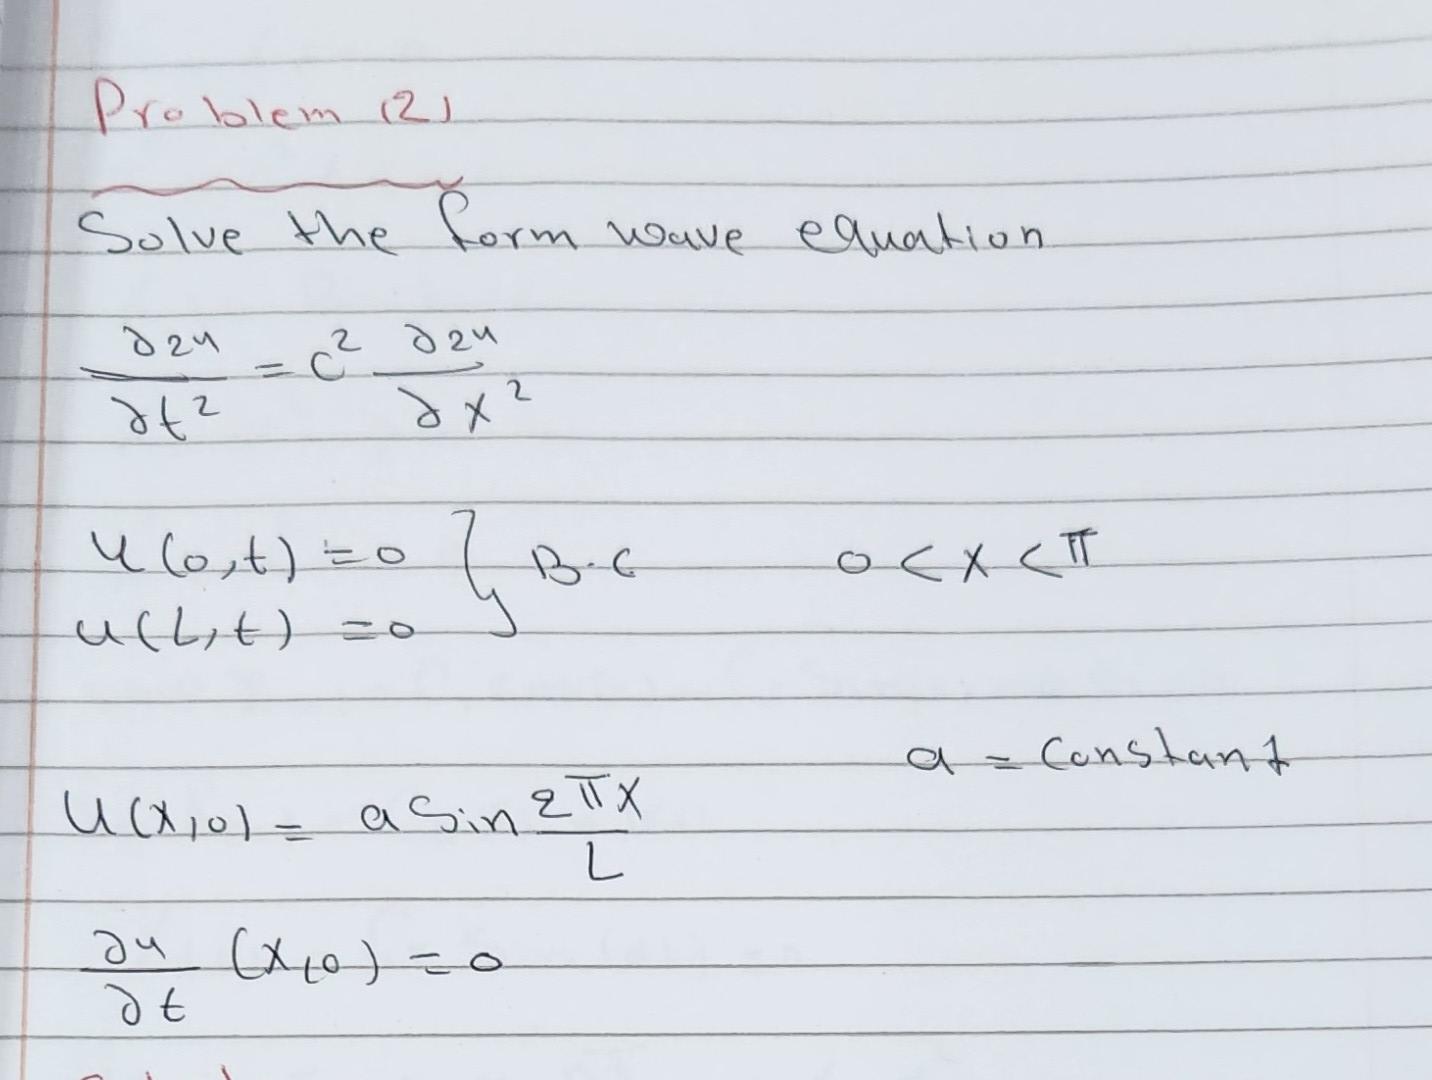 Problem (2)
Solve the form wave equation
∂2u/∂t² = c² ∂2u/∂x²
u(0,t) = 0 } B.C 0 < x < π
u(L,t) = 0
a = Constant
u(x,0) = a Sin 2πx/L
∂u/∂t (x,0) = 0